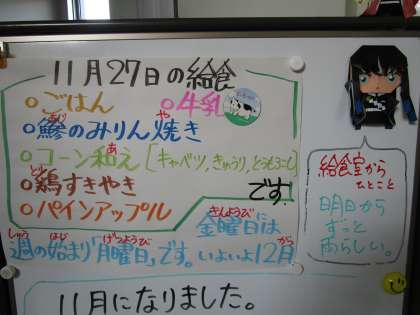 11月27日の給食
○ごはん ○牛乳
○鯵のみりん焼き
○コーン和え[キャベツ,きゅうり,とうもろこし]
○鶏すきやき
○パインアップル
です!
金曜日には
週の始まり「月曜日」です。いよいよ12月
11月になりました。
給食室から
ひとこと
明日から
ずっと
雨らしい。